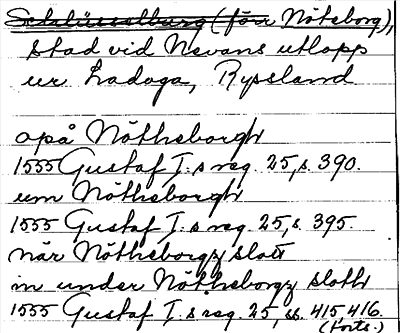 Schlüsselburg (förr Nöteborg),
stad vid Nevans utlopp
ur Ladoga, Ryssland
opå Nötheborgh
1555 Gustaf I:s reg. 25, s. 390.
um Nötheborgh
1555 Gustaf I:s reg. 25, s. 395.
när Nötheborgz slott
in under Nötheborgz sloth
1555 Gustaf I:s reg. 25, ss. 415, 416.
(Forts.)